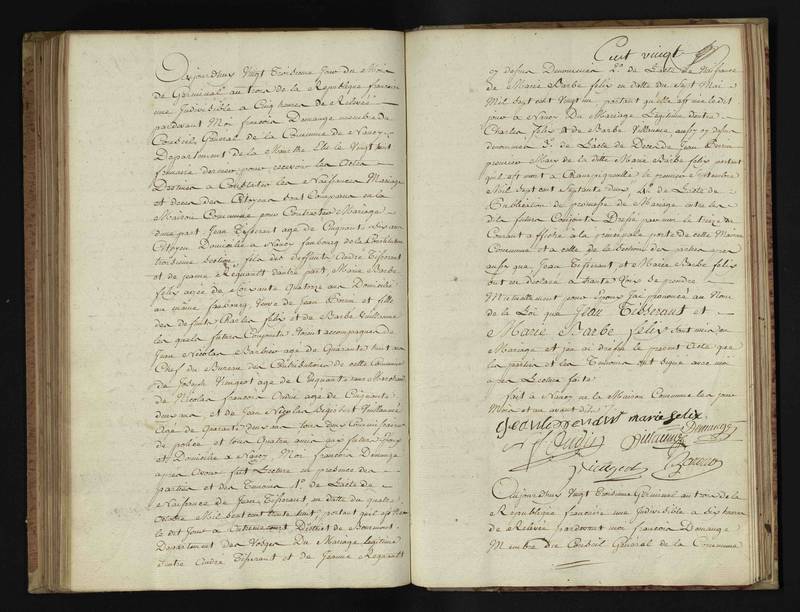 Aujourdhuy Vingt Troisieme Jour du Mois
de Germinal an trois de la Republique francaise
une Indivisible a Cinq heures de Relevée
pardevant Moi francois Domange membre du
Conseil General de la Commune de Nancy
Departement de la Meurthe Elu le Vingt huit
frimaire dernier pour recevoir les Actes
Destinés a Constater les Naissances Mariages
et deces des Citoyens sont Comparus en la
Maison Commune pour Contracter Mariage
dune part Jean Tisserant agé de Cinquante six ans
Citoyen Domicilié a Nancy faubourg de la Constitution
troisieme Section, fils des deffunts Andre Tisserant
et de jeanne Regnault dautre part Marie Barbe
felix agée de Soixante quatorze ans Demeurant
au même faubourg Veuve de Jean Perin et fille
des defunts Charles felix et de Barbe Vuillaume
les quels futurs Conjoints étoient accompagnés de
Jean Nicolas Barbier agé de Quarante huit ans
Chef du Bureau des Contributions de cette Commune
de Joseph Vingeot agé de Cinquante ans Marchand
de Nicolas francois Oudié agé de Cinquante
deux ans et de Jean Nicolas Regis Vuillaume
Agé de Quarante deux ans tous deux Commissaires
de police et tous Quatre amis aux futurs Epoux
et Domiciliés a Nancy, Moi francois Domange
apres avoir fait Lecture en presence des
parties et des Temoins 1.º de L'acte de
Naissance de Jean Tisserant en datte du quatre
Octobre Mil sept cent trente huit, portant quil est né
le dit jour a District de Bourmont
Departement des Vosges Du Mariage legitime
d'entre Andre Tisserant et de Jeanne Regnault
Cent vingt
cy dessus Denommés 2.º de L'acte de Naissance
de Marie Barbe felix en datte du Sept Mai
Mil Sept cent Vingt un, portant quelle est née le dit
jour a Nancy Du Mariage Legitime dentre
Charles felix & de Barbe Vuillaume aussy cy dessus
denommés 3.º de L'acte de Deces de Jean Perin
premier Mary de la dite Marie Barbe felix portant
quil est mort a Champigneulle le premier Septembre
Mil Sept cent Septante deux 4.º de L'acte de
Publication de promesse de Mariage entre les
dits futurs Conjoints Dressé par moi le treize du
Courant affiché a la principale porte de cette Maison
Commune et a celle de la Section des parties apres
aussy que Jean Tisserant et Marie Barbe felix
ont eu declaré a haute Voix se prendre
Mutuellement pour Epoux J'ai prononcé au Nom
de la Loi que Jean Tisserant et
Marie Barbe felix sont unis en
Mariage et j'en ai dressé le present Acte que
les parties et les Temoins ont signé avec moi
apres Lecture faite
fait a Nancy en la Maison Commune les jour
Mois et an avant dits
marie felix
Oudié Vuillaume Domange
Vingeot Barbier
Aujourdhuy Vingt Troisieme Germinal an trois de la
Republique francaise une Indivisible a Six heures
de Relevée pardevant moi francois Domange
Membre du Conseil Général de la Commune